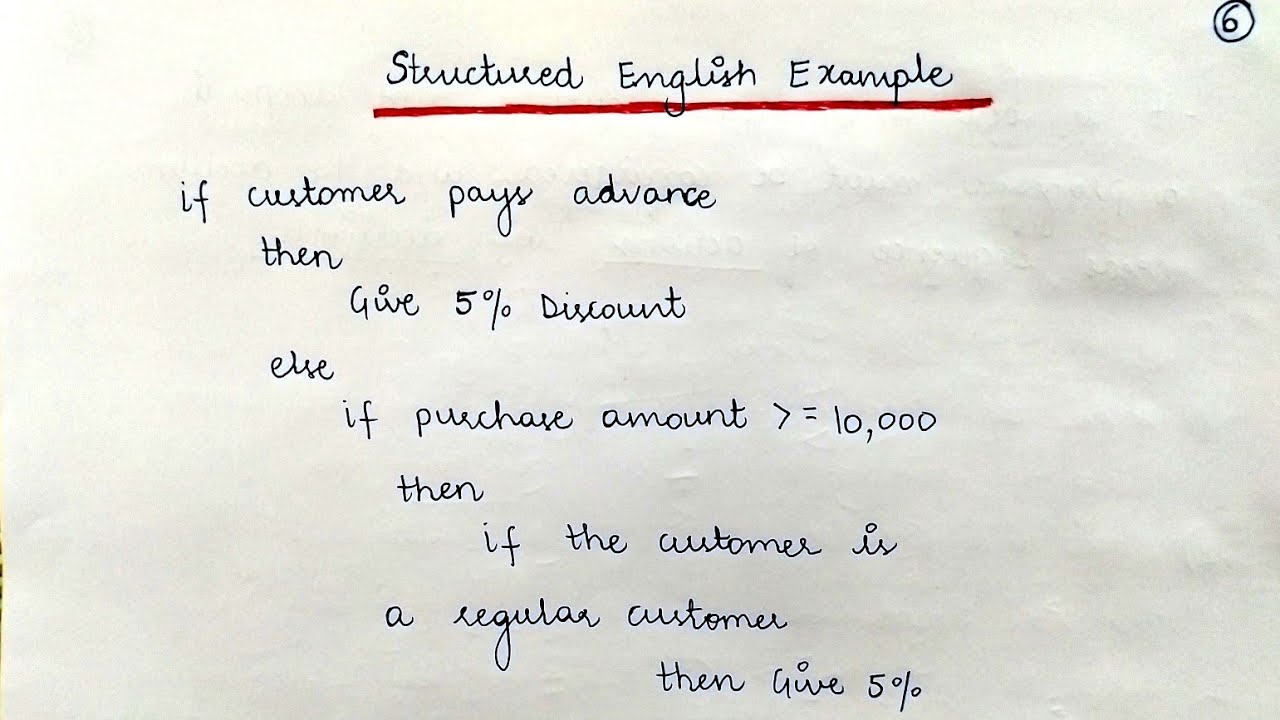 6
Structured English Example
if customer pays advance
then
Give 5% Discount
else
if purchase amount >= 10,000
then
if the customer is
a regular customer
then Give 5%